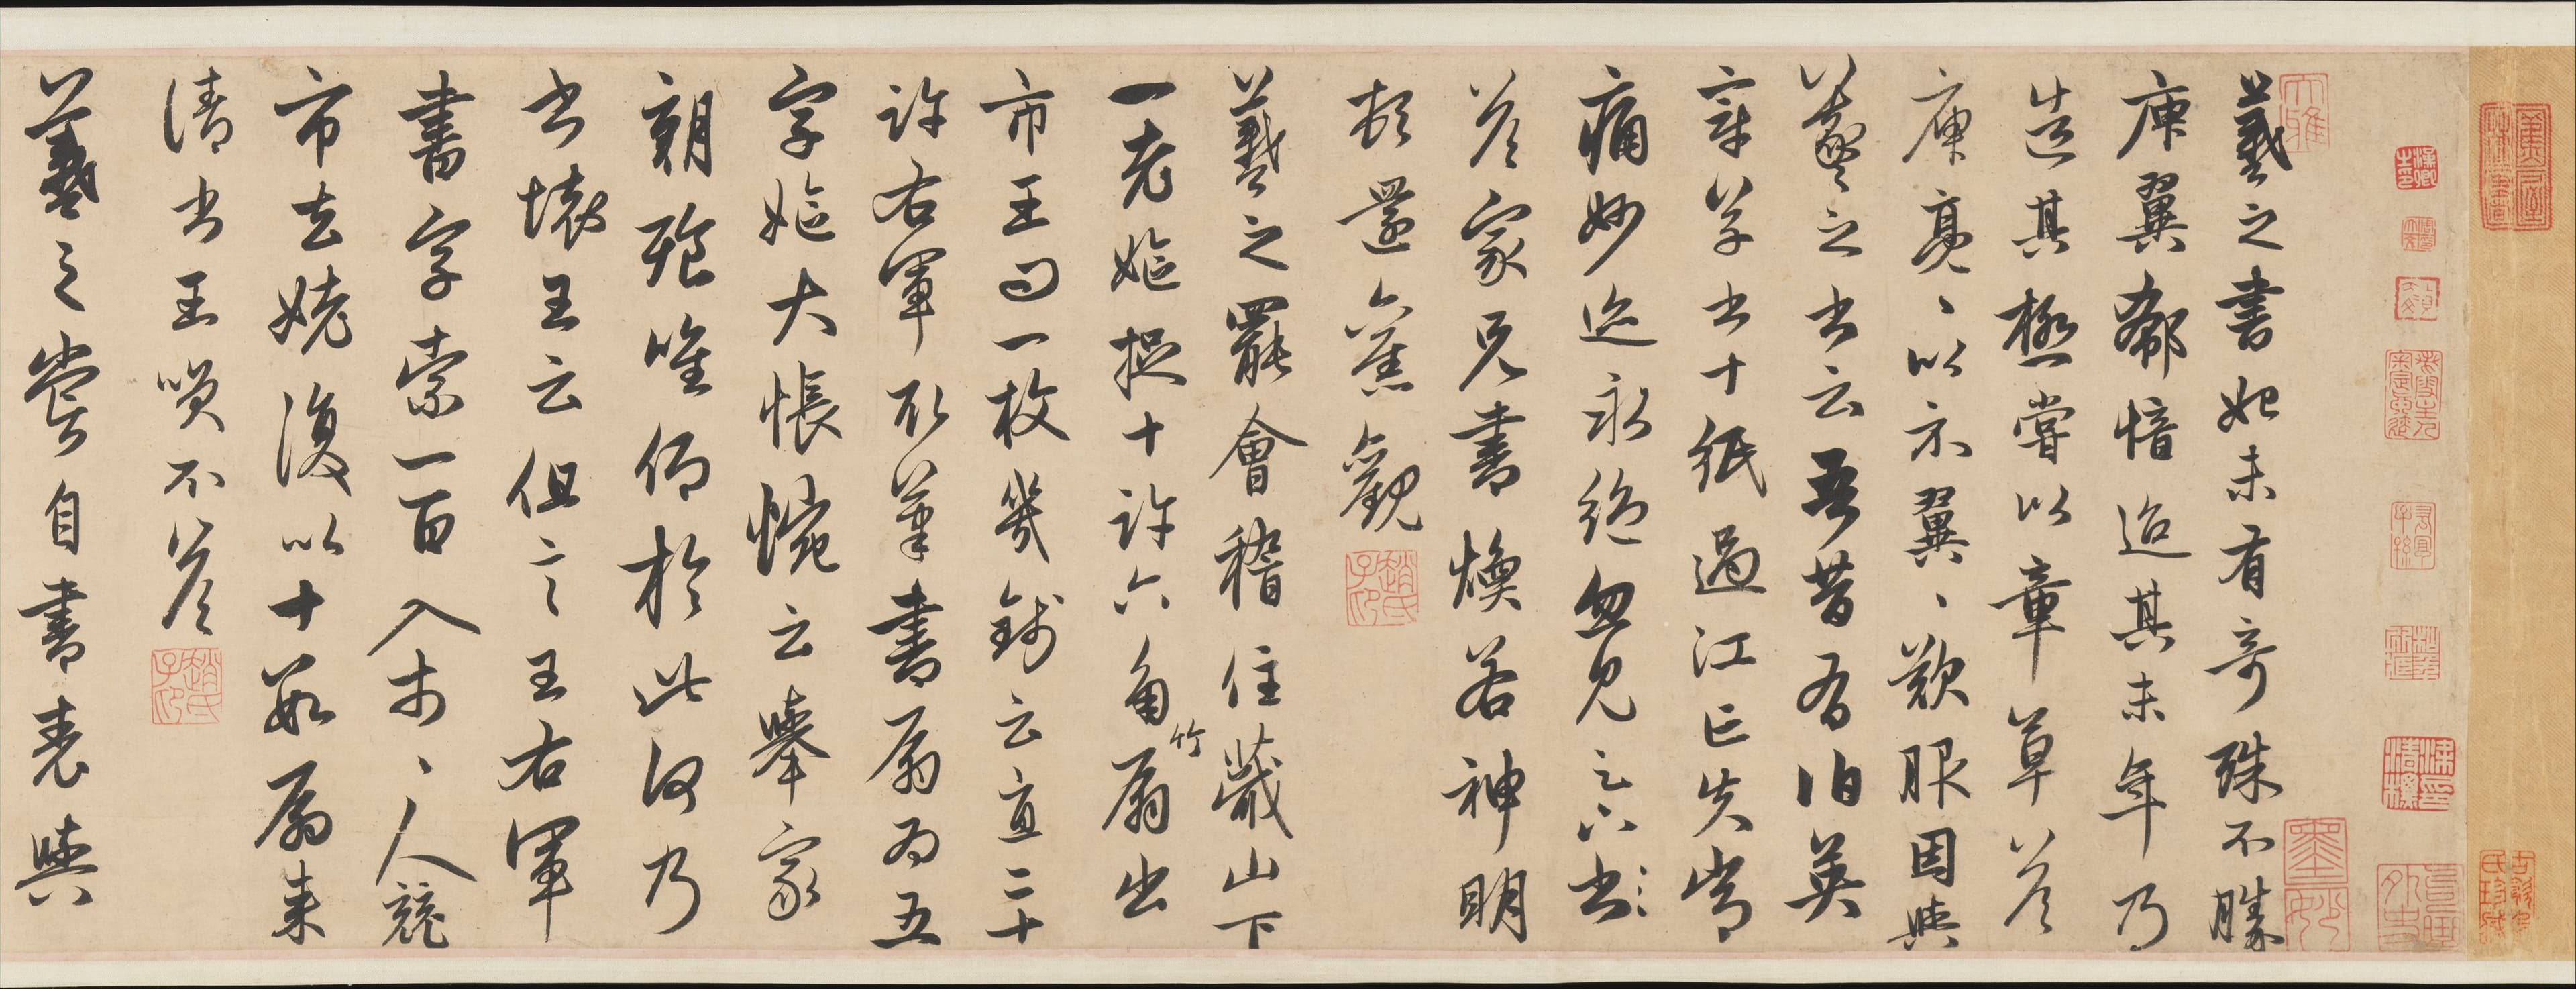 羲之書初未有奇殊不勝
庾翼郗愔迨其末年乃
造其極嘗以章草答
庾亮、以示翼、歎服因與
羲之書云吾昔有伯英
章草書十紙過江亡失常
痛妙迹永絕忽見足下書
答家兄書煥若神明
頓還舊觀
趙氏子昂
羲之罷會稽住蕺山下
一老嫗捉十許六角竹扇出
市王問一枚幾錢云直二十
許右軍取筆書扇為五
字嫗大悵惋云舉家
朝飱唯仰於此何乃
書壞王云但言王右軍
書字索一百入市、人競
市去姥復以十數扇來
請書王笑不答
趙氏子昂
羲之嘗自書表與
大雅
墨妙